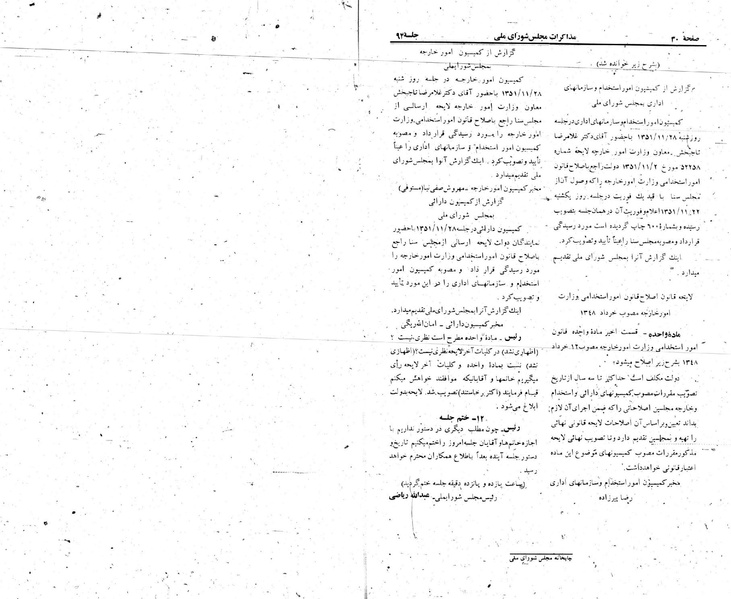 صفحهٔ ۳۰
مذاکرات مجلس شورای ملی
جلسهٔ ۹۲
(بشرح زیر خوانده شد)
گزارش از کمیسیون امور استخدام و سازمانهای
اداری بمجلس شورای ملی
کمیسیون امور استخدام و سازمانهای اداری در جلسه
روز شنبه ۱۳۵۱/۱۱/۲۸ با حضور آقای دکتر غلامرضا
تاجبخش معاون وزارت امور خارجه لایحهٔ شمارهٔ
۵۲۲۵۸ مورخ ۱۳۵۱/۱۱/۲ دولت راجع باصلاح قانون
امور استخدامی وزارت امور خارجه را که وصول آن از
مجلس سنا با قید یک فوریت در جلسه روز یکشنبه
۱۳۵۱/۱۱/۲۲ اعلام و فوریت آن در همان جلسه بتصویب
رسیده و بشمارهٔ ۶۰۰ چاپ گردیده است مورد رسیدگی
قرار داد و مصوبه مجلس سنا را عیناً تأیید و تصویب کرد.
اینک گزارش آنرا بمجلس شورای ملی تقدیم
میدارد.
لایحه قانون اصلاح قانون امور استخدامی وزارت
امور خارجه مصوب خرداد ۱۳۴۸
مادهٔ واحده - قسمت اخیر مادهٔ واحده قانون
امور استخدامی وزارت امور خارجه مصوب ۱۲ خرداد
۱۳۴۸ بشرح زیر اصلاح میشود:
دولت مکلف است حداکثر تا سه سال از تاریخ
تصویب مقررات مصوب کمیسیونهای دارائی و استخدام
و خارجه مجلسین اصلاحاتی را که ضمن اجرای آن لازم
بداند تعیین و بر اساس آن اصلاحات لایحه قانونی نهائی
را تهیه و بمجلسین تقدیم دارد و تا تصویب نهائی لایحه
مذکور مقررات مصوب کمیسیونهای موضوع این ماده
اعتبار قانونی خواهد داشت.
مخبر کمیسیون امور استخدام و سازمانهای اداری
رضا پیرزاده
گزارش از کمیسیون امور خارجه
بمجلس شورایملی
کمیسیون امور خارجه در جلسه روز شنبه
۱۳۵۱/۱۱/۲۸ با حضور آقای دکتر غلامرضا تاجبخش
معاون وزارت امور خارجه لایحه ارسالی از
مجلس سنا راجع باصلاح قانون امور استخدامی وزارت
امور خارجه را مورد رسیدگی قرار داد و مصوبه
کمیسیون امور استخدام و سازمانهای اداری را عیناً
تأیید و تصویب کرد. اینک گزارش آنرا بمجلس شورای
ملی تقدیم میدارد.
مخبر کمیسیون امور خارجه - مهروش صفی نیا (مستوفی)
گزارش از کمیسیون دارائی
بمجلس شورای ملی
کمیسیون دارائی در جلسه ۱۳۵۱/۱۱/۲۸ با حضور
نمایندگان دولت لایحه ارسالی از مجلس سنا راجع
باصلاح قانون امور استخدامی وزارت امور خارجه را
مورد رسیدگی قرار داد و مصوبه کمیسیون امور
استخدام و سازمانهای اداری را در این مورد تأیید
و تصویب کرد.
اینک گزارش آنرا بمجلس شورای ملی تقدیم میدارد.
مخبر کمیسیون دارائی - امان الله ریگی
رئیس - مادهٔ واحده مطرح است نظری نیست؟
(اظهاری نشد) در کلیات آخر لایحه نظری نیست؟ (اظهاری
نشد) نسبت بمادهٔ واحده و کلیات آخر لایحه رأی
میگیریم خانمها و آقایانیکه موافقند خواهش میکنم
قیام فرمایند (اکثر برخاستند) تصویب شد. لایحه بدولت
ابلاغ می‌شود.
۱۲- ختم جلسه
رئیس - چون مطلب دیگری در دستور نداریم با
اجازه خانمها و آقایان جلسه امروز را ختم میکنیم تاریخ و
دستور جلسه آینده بعداً باطلاع همکاران محترم خواهد
رسید.
(ساعت یازده و پانزده دقیقه جلسه ختم گردید)
رئیس مجلس شورایملی - عبدالله ریاضی
چاپخانه مجلس شورای ملی